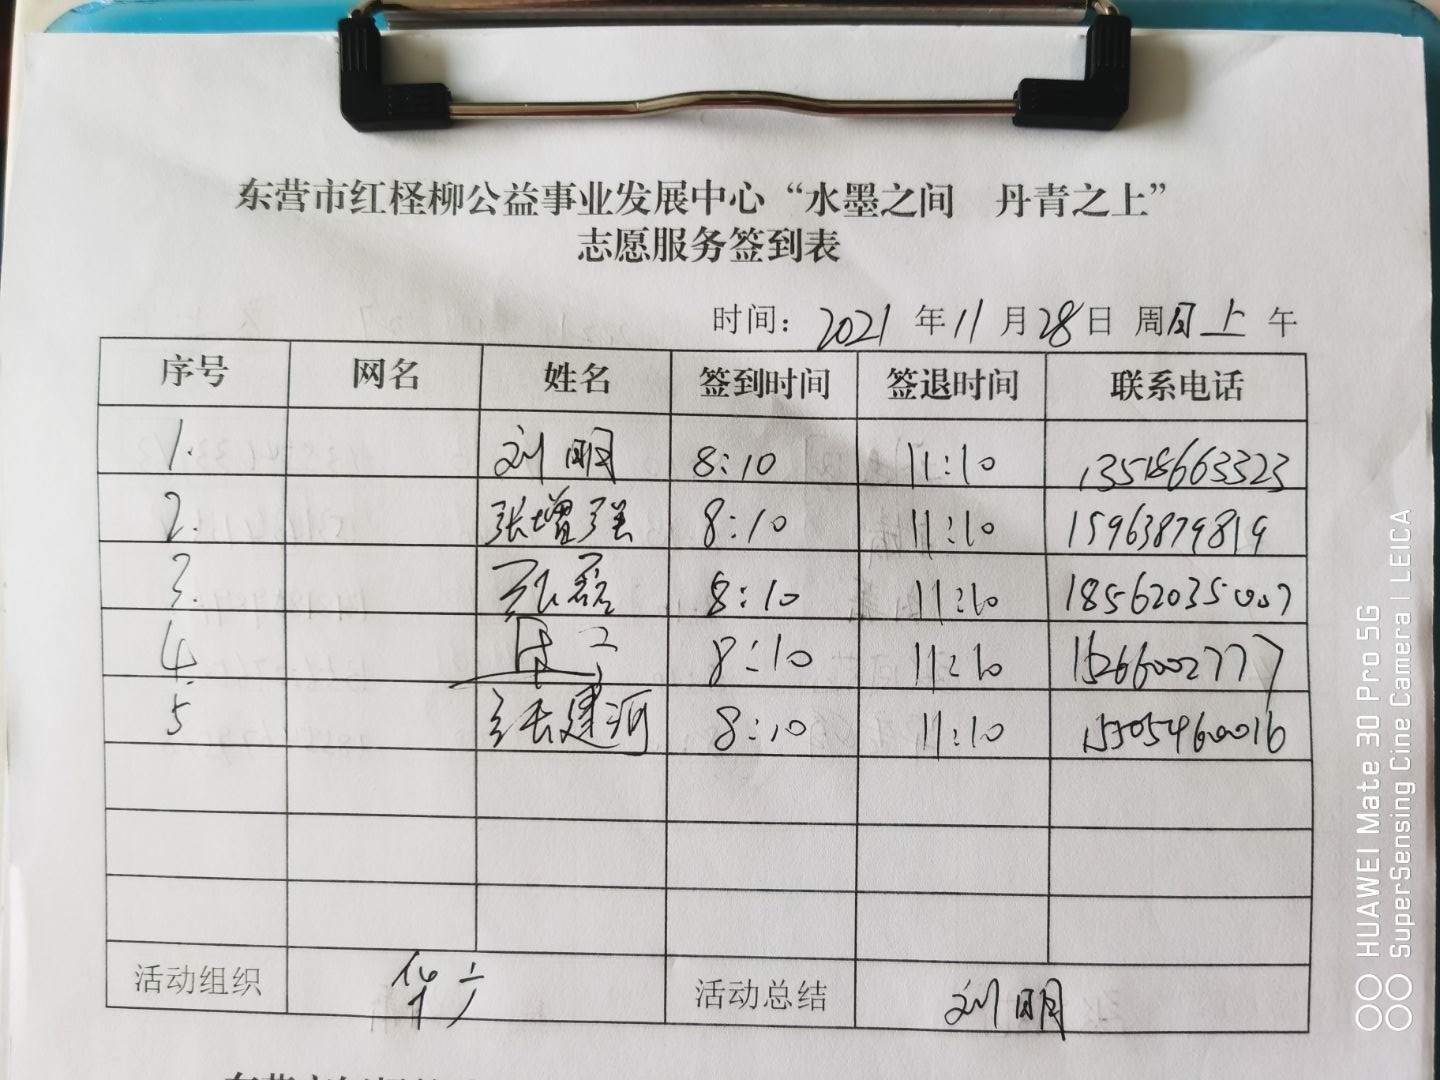 东营市红柽柳公益事业发展中心“水墨之间 丹青之上”
志愿服务签到表
时间： 2021 年 11 月 28 日 周日 上 午
序号 网名 姓名 签到时间 签退时间 联系电话
1. 刘明 8:10 11:10
2. 张增强 8:10 11:10 15963879819
3. 张磊 8:10 11:10 18562035007
4. 8:10 11:10 15266002777
5 张建河 8:10 11:10 15305460016
活动组织 活动总结 刘明
HUAWEI Mate 30 Pro 5G
SuperSensing Cine Camera | LEICA